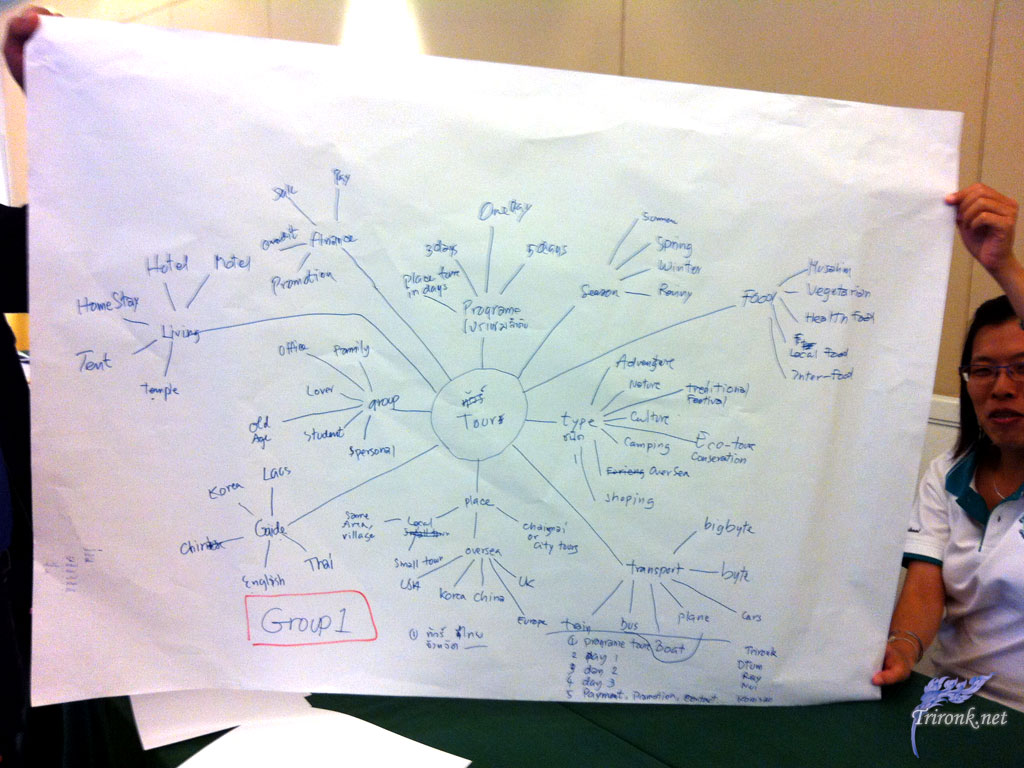 Sale
Pay
Finance
Promotion
One Day
3 days
5 days
place tour
in days
Programe
โปรแกรม
Season
Spring
Winter
Food
Musalim
Vegetarian
Health Food
Local Food
Inter-food
Hotel
Motel
Home Stay
Living
Tent
temple
Office
Family
Lover
group
Old
Age
Student
personal
ทัวร์
Tours
type
Adventure
Nature
Treditional
Festival
Culture
Camping
Eco-tour
Conseration
OverSea
Shoping
Korea
Laos
Guide
Thai
English
place
Same
Area,
village
Local
Small tour
oversea
chaingmai
or
city tours
USA
Korea
China
UK
Europe
transport
bigbyte
byte
train
bus
Boat
plane
Cars
Group 1
① ทัวร์ ไทย
① programe tour
2 Day 1
3 day 2
4 day 3
5 Payment, Promotion, contact
Trironk
Ray
Trironk.net